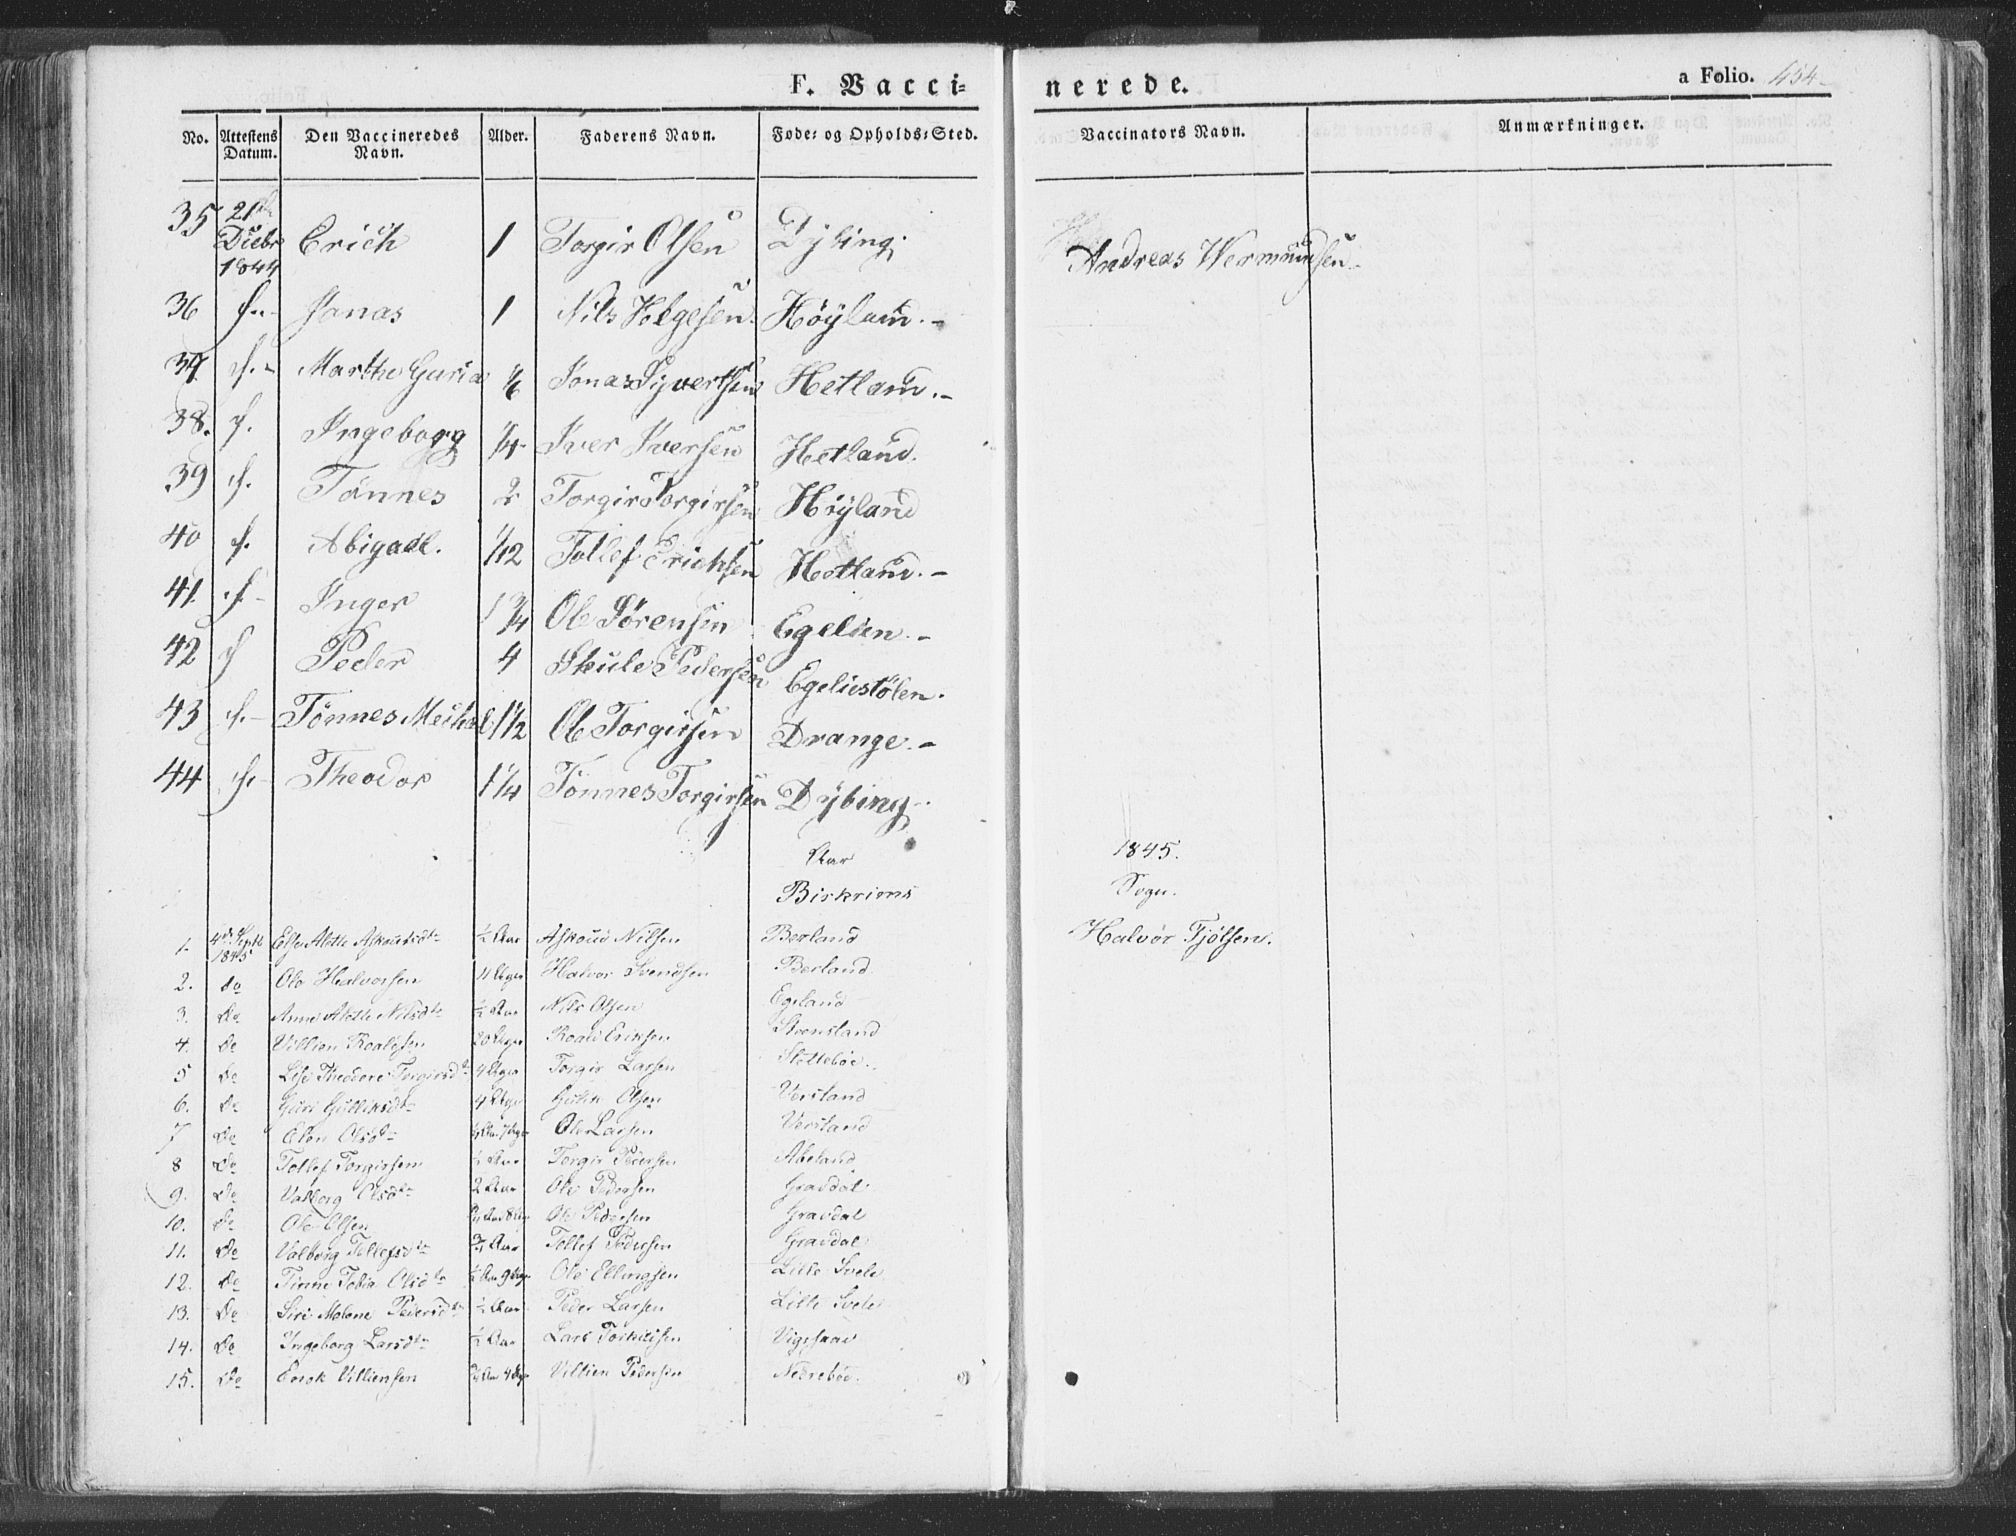 F. Vacci-
nerede.
a Folio. 454.
No. Attestens Datum. Den Vaccineredes Navn. Alder. Faderens Navn. Føde- og Opholds-Sted. Vaccinators Navn. Anmærkninger.
35 21de Decbr 1844 Erich 1 Torgir Olsen Dybing. Andreas Wermundsen
36 Jonas 1 Nils Helgesen Høyland.-
37. Marthe Guria 1/6 Jonas Syvertsen Hetland.-
38. Ingeborg 1/4 Iver Iversen Hetland.
39 Tønnes 2 Torgir Torgirsen Høyland
40 Abigael. 1/12 Tollef Erichsen Hetland.-
41. Inger 1 3/4 Ole Sørensen Egelien.-
42 Peder 4 Skule Pedersen Egelistølen.
43 Tønnes Michal 1 1/2 Ole Torgirsen Drange.-
44 Theodor 1 1/4 Tönnes Torgirsen Dybing.
Aar 1845.
Birkrims Sogn.
1. 4de Septb 1845 Else Alette Askouvsdtr 1/2 Aar Askouv Nilsen Berland Halvor Tjølsen.
2. do Ole Halvorsen 11 Uger Halvor Svendsen Berland
3. do Anne Malene Nilsdtr 1/2 Aar Nils Olsen Egeland
4. do Villien Roaldsen 20 Uger Roald Eriksen Stensland
5 do Lise Theodore Torgirsdtr 4 Uger Torgir Larsen Slettebøe.
6. do Guri Gulliksdtr 4 Uger Olsen Verstand
7 do Elen Olsdtr Ole Larsen Verstand
8 do Tollef Torgirsen 1/2 Aar Torgir Pedersen Abeland
9. do Valborg Olsdtr 2 Aar Ole Pedersen Gravdal
10. do Ole Olsen Ole Pedersen Gravdal
11. do Valborg Tollefsdtr 3/4 Aar Tollef Pedersen Gravdal
12. do Tinne Tobia Olsdtr 1/2 Aar 9 Uger Ole Ellingsen Lille Svele
13. do Siri Malene Pedersdtr 1/2 Aar Peder Larsen Lille Svele
14. do Ingeborg Larsdtr 1/2 Aar Lars Torkildsen Vigesaae
15. do Enok Villiensen Villien Pedersen Nedrebøe.